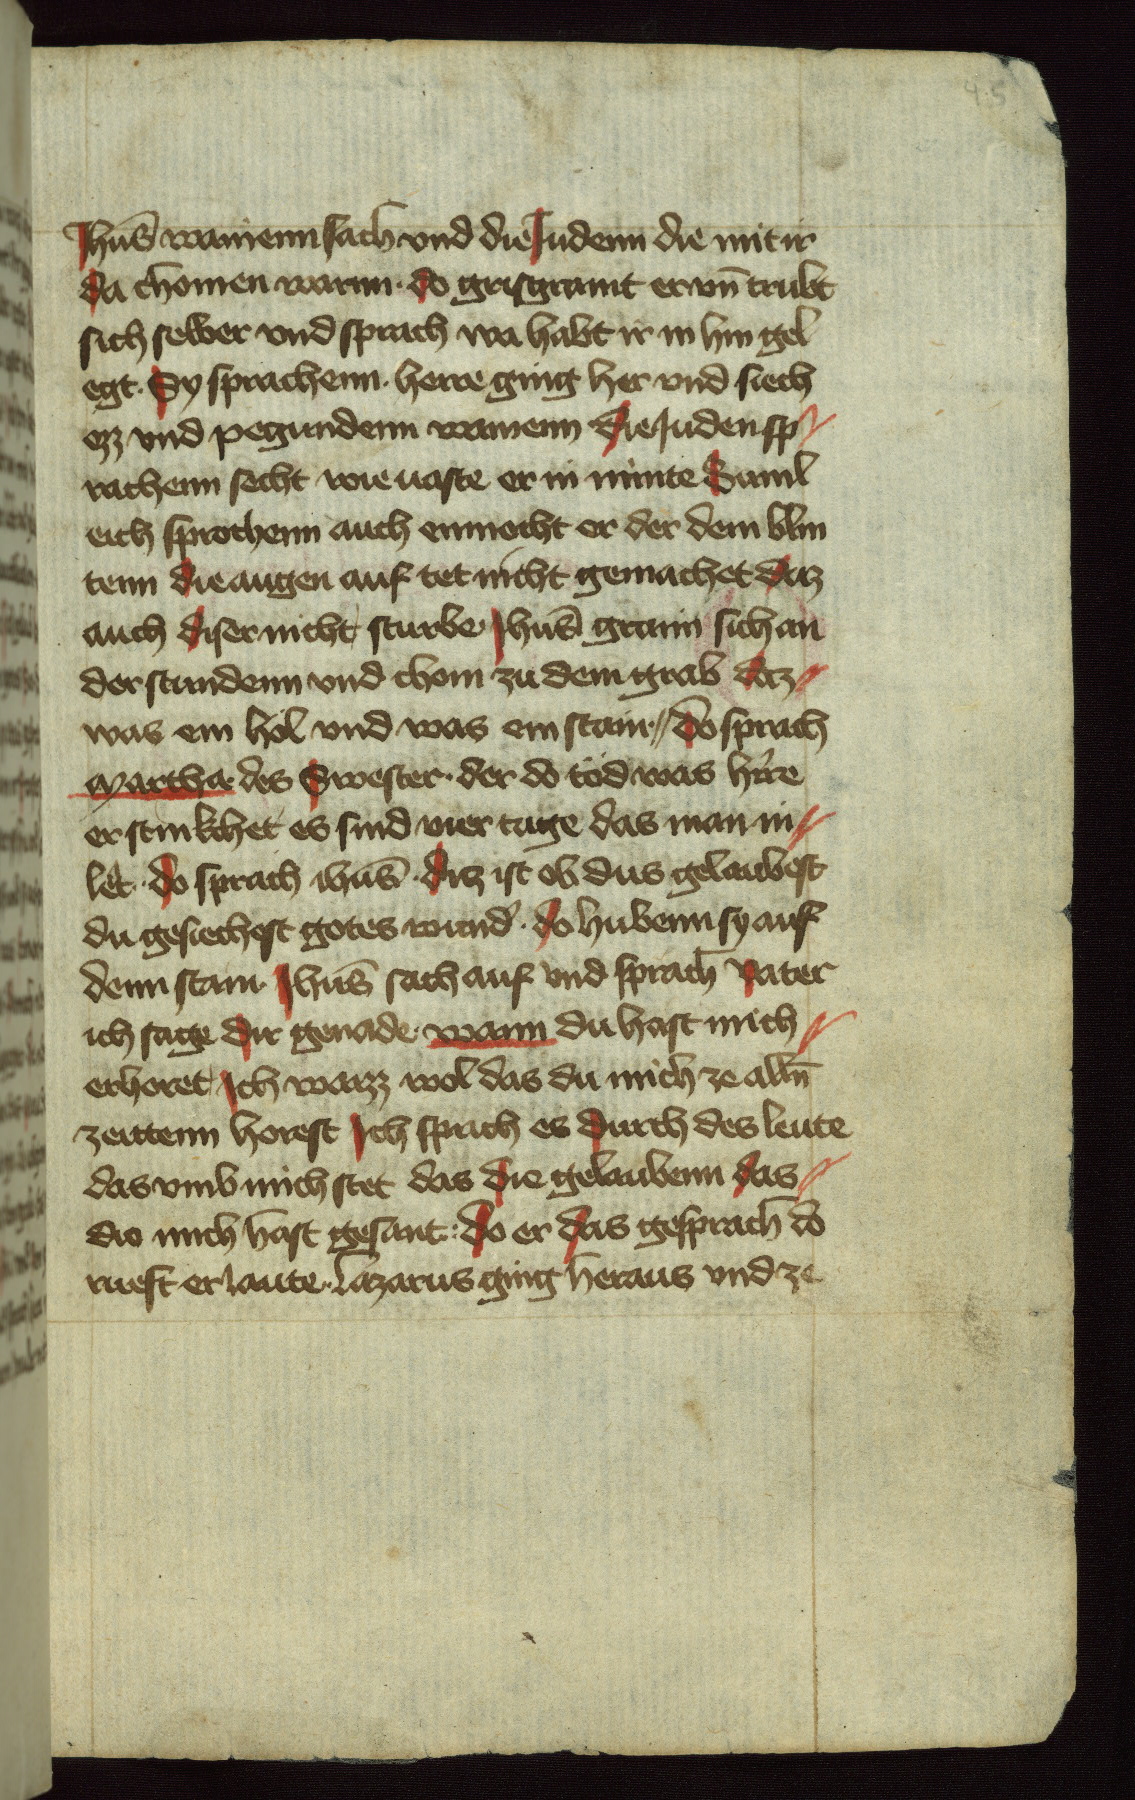 45
Jhus̄ wainenn sach vnd die Judenn die mit ir
da chomen warnn · do grisgramt er vn̄ trubt
sich selber vnd sprach wa habt ir in hin gel
egt · Sy sprachenn · herre ging her vnd siech
ezz vnd pegundenn wainenn die Juden sp
rachenn secht wie uaste er in minte Suml
eich sprachenn auch enmocht er der dem blin
tenn die augen auf tet nicht gemachet daz
auch diser nicht sturbe · Jhus̄ gramm sich an
der stundenn vnd chom zu dem grab daz
was ein hol vnd was ein stain · // do sprach
Martha · des Swester · der do tod was h̓re
er stinkchet es sind vier tage das man in
let · do sprach ihus̄ · diz ist ob dus gelaubest
du gesiechest gotes wund̓ · do hubenn sy auf
denn stain · Jhus̄ sach auf vnd sprach vater
ich sage dir genade · wann du hast mich
erhoret Ich waizz wol das du mich ze alln̄
zeittenn horest Ich sprich es durch des leute
das vmb mich stet das die gelaubenn das
dw mich hast gesant · do er das gesprach do
rueft er laute · Lazarus ging heraus vnd ze